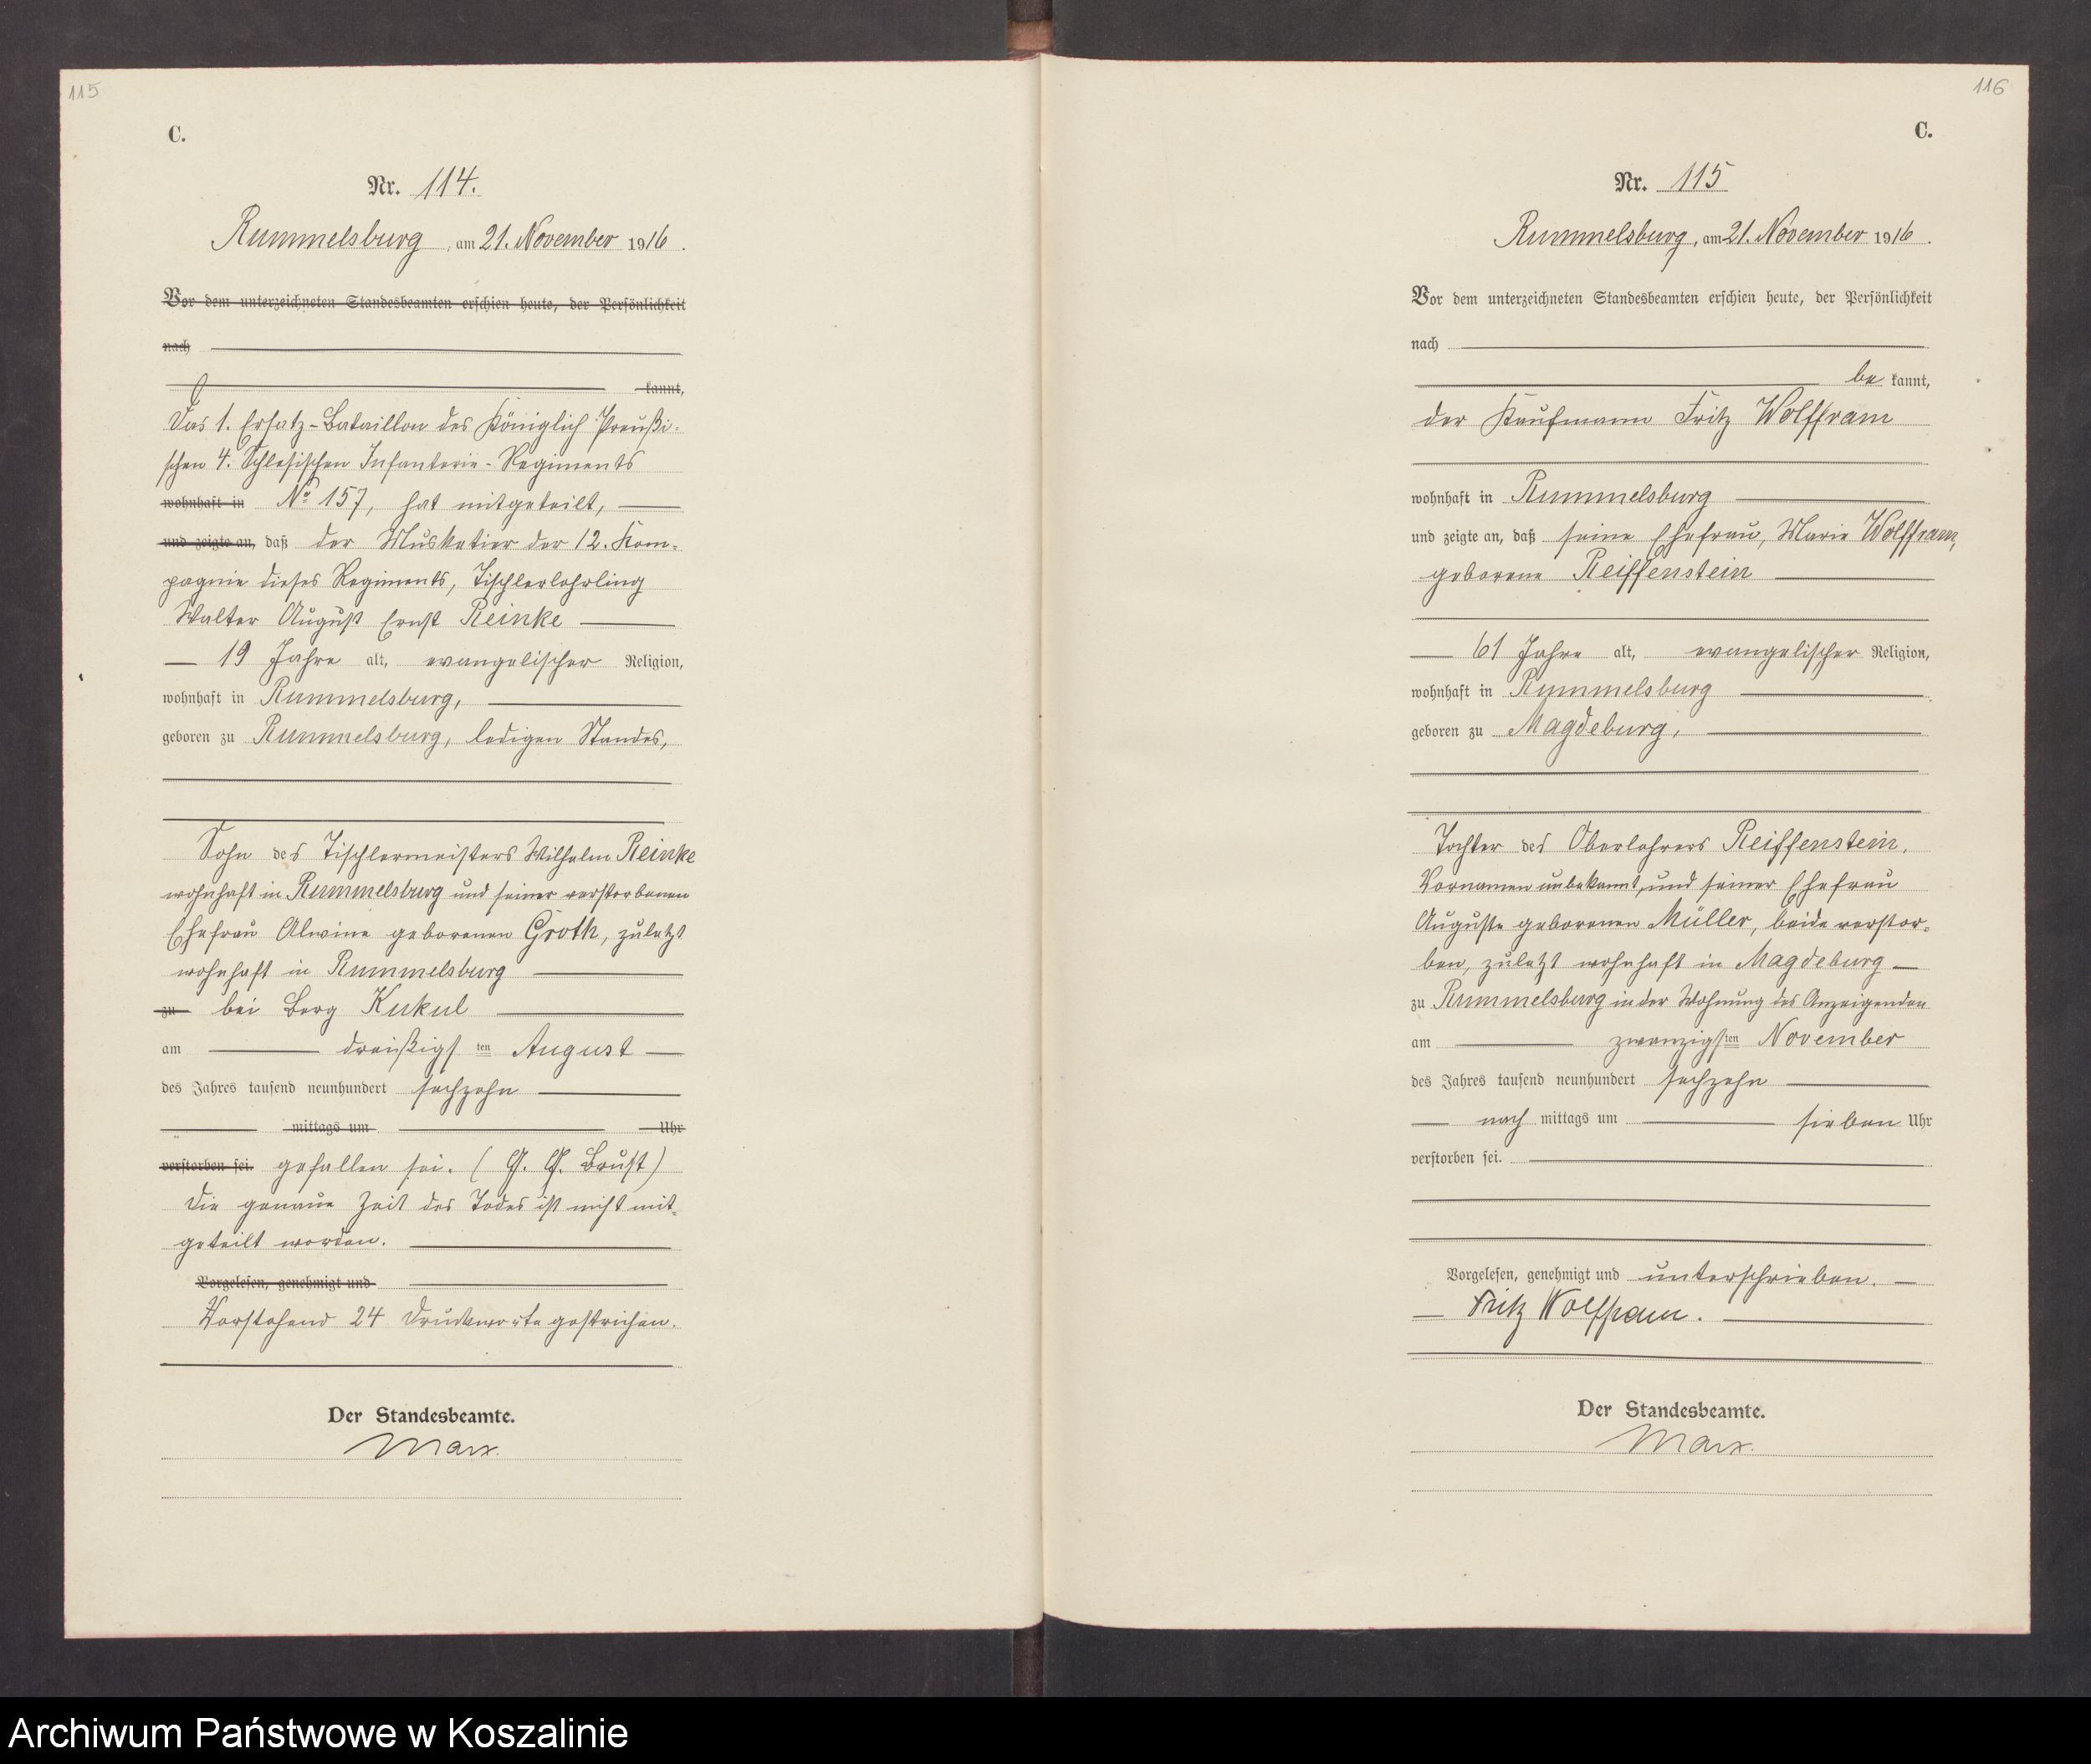 115
C.
Nr. 114.
Rummelsburg, am 21. November 1916.
Vor dem unterzeichneten Standesbeamten erschien heute, der Persönlichkeit
nach
kannt,
Das 1. Ersatz-Bataillon des Königlich Preußi-
schen 4. Schlesischen Infanterie-Regiments
wohnhaft in No 157, hat mitgeteilt,
und zeigte an, daß der Musketier der 12. Kom-
pagnie dieses Regiments, Tischlerlehrling
Walter August Ernst Reinke
19 Jahre alt, evangelischer Religion,
wohnhaft in Rummelsburg,
geboren zu Rummelsburg, ledigen Standes,
Sohn des Tischlermeisters Wilhelm Reinke
wohnhaft in Rummelsburg und seiner verstorbenen
Ehefrau Alwine geborenen Groth, zuletzt
wohnhaft in Rummelsburg
zu bei Berg Kukul
am dreißigsten August
des Jahres tausend neunhundert sechzehn
mittags um Uhr
verstorben sei. gefallen sei. (G. G. Brust)
Die genaue Zeit des Todes ist nicht mit-
geteilt worden.
Vorgelesen, genehmigt und
Vorstehend 24 Druckworte gestrichen.
Der Standesbeamte.
Marx.
116
C.
Nr. 115
Rummelsburg, am 21. November 1916.
Vor dem unterzeichneten Standesbeamten erschien heute, der Persönlichkeit
nach
be kannt,
der Kaufmann Fritz Wolffram
wohnhaft in Rummelsburg
und zeigte an, daß seine Ehefrau, Marie Wolffram,
geborene Reiffenstein
61 Jahre alt, evangelischer Religion,
wohnhaft in Rummelsburg
geboren zu Magdeburg,
Tochter des Oberlehrers Reiffenstein,
Vornamen unbekannt, und seiner Ehefrau
Auguste geborenen Müller, beide verstor-
ben, zuletzt wohnhaft in Magdeburg
zu Rummelsburg in der Wohnung des Anzeigenden
am zwanzigsten November
des Jahres tausend neunhundert sechzehn
nach mittags um sieben Uhr
verstorben sei.
Vorgelesen, genehmigt und unterschrieben.
Fritz Wolffram.
Der Standesbeamte.
Marx.
Archiwum Państwowe w Koszalinie